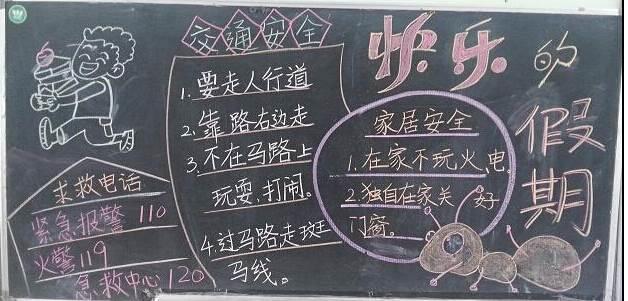 快乐的假期
交通安全
1.要走人行道
2.靠路右边走
3.不在马路上
玩耍,打闹。
4.过马路走斑
马线。
家居安全
1.在家不玩火,电。
2.独自在家关好
门窗。
求救电话
紧急报警 110
火警119
急救中心120